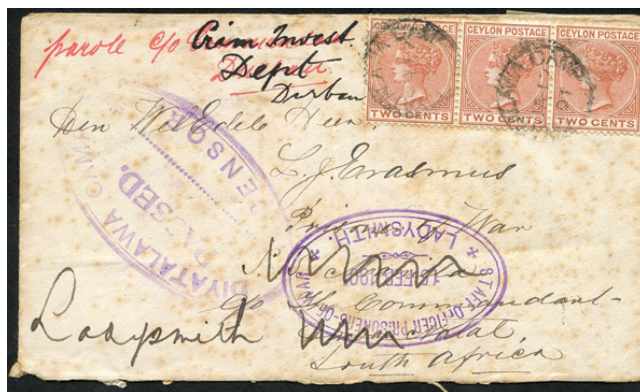 parole c/o
Crim Invest.
Dept
Durban
CEYLON POSTAGE
TWO CENTS
CEYLON POSTAGE
TWO CENTS
CEYLON POSTAGE
TWO CENTS
Den WelEdele Heer
L. J. Erasmus
Prisoner of War
c/o The Commandant
South Africa
Ladysmith
DIYATALAWA CAMP
PASSED.
CENSOR
STAFF OFFICER PRISONERS-OF-WAR
FEB 190
LADYSMITH.